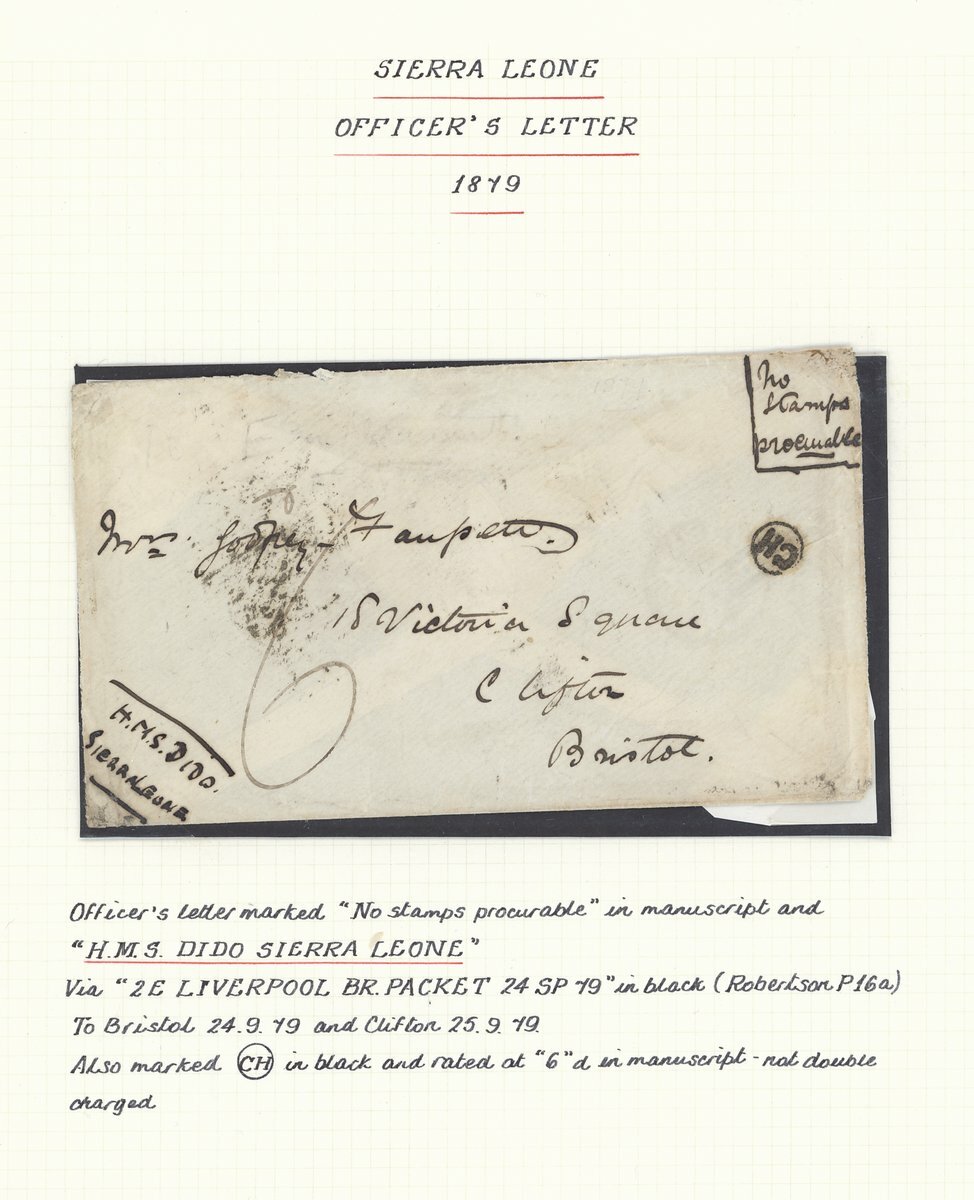 SIERRA LEONE
OFFICER'S LETTER
1879
No
Stamps
procurable
Mrs. Godfrey-Faussett.
CH
18 Victoria Square
Clifton
Bristol.
6
H.M.S. DIDO.
SIERRA LEONE
Officer's letter marked "No stamps procurable" in manuscript and
"H.M.S. DIDO SIERRA LEONE"
Via "2E LIVERPOOL BR. PACKET 24 SP 79" in black (Robertson P16a)
To Bristol 24.9.79 and Clifton 25.9.79.
Also marked CH in black and rated at "6"d in manuscript - not double
charged